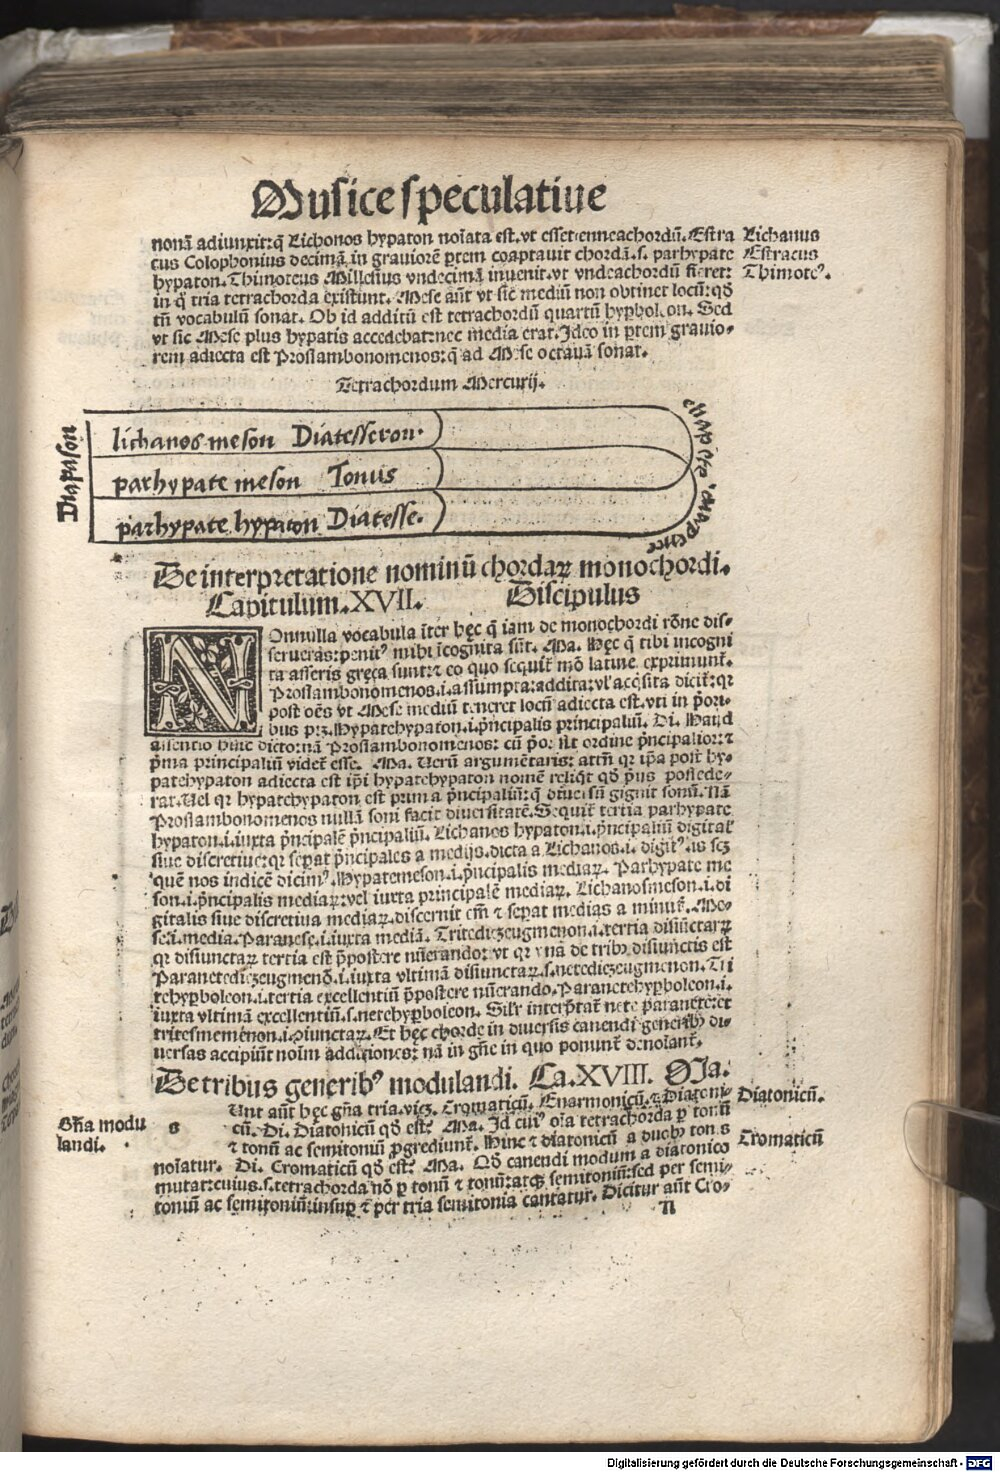 Musice speculatiue
nonā adiunxit:q̄ Lichonos hypaton noīata est.vt esset enneachordū. Estra
cus Colophonius decimā in grauiorē ptem coaptauit chordā.s. parhypate
hypaton. Thimoteus Millesius vndecimā inuenit.vt vndeachordū fieret:
in q̄ tria tetrachorda existunt. Mese aūt vt sic mediū non obtinet locū:qđ
tn̄ vocabulū sonat. Ob id additū est tetrachordū quartū Sed
vt sic Mese plus hypatis accedebat:nec media erat. Ideo in ptem grauio-
rem adiecta est Proslambonomenos:q̄ ad Mese octauā sonat.
Lichanus
Estracus
Thimoteꝰ.
Tetrachordum Mercurij.
Diapason
lichanos meson Diatesseron.
parhypate meson Tonus
parhypate hypaton Diatesse.
De interpretatione nominū chordaꝝ monochordi.
Capitulum.XVII. Discipulus
NOnnulla vocabula īter hęc q̄ iam de monochordi rōne dis-
serueras:penitꝰ mihi īcognita sūt. Ma. Hęc q̄ tibi incogni
ta asseris gręca sunt:⁊ eo quo sequit̄ mō latine exprimunt̄.
Proslambonomenos.i.assumpta:addita:vl' acq̄sita dicit̄:qꝛ
post oēs vt Mese mediū teneret locū adiecta est.vti in p̄ori-
bus pꝫ. Hypatehypaton.i.p̄ncipalis principaliū. Di. Haud
assentio huic dicto:nā Proslambonomenos: cū p̄or sit ordine p̄ncipalior:⁊
p̄ma principaliū videt̄ esse. Ma. Uerū argumētaris: attn̄ qꝛ ip̄a post hy-
patehypaton adiecta est ip̄i hypatehypaton nomē reliq̄t qđ p̄us possede-
rat. Uel qꝛ hypatehypaton est prima p̄ncipaliū:q̄ diuersū gignit sonū. Nā
Proslambonomenos nullā soni facit diuersitatē. Sequit̄ tertia parhypate
hypaton.i.iuxta p̄ncipalē p̄ncipaliū. Lichanos hypaton.i.p̄ncipaliū digital'
siue discretiue:qꝛ sepat p̄ncipales a medijs.dicta a Lichanos.i. digitꝰ.is scꝫ
quē nos indicē dicimꝰ. Hypatemeson.i.p̄ncipalis mediaꝝ. Parhypate me
son.i.p̄ncipalis mediaꝝ:vel iuxta principalē mediaꝝ. Lichanosmeson.i.di
gitalis siue discretiua mediaꝝ.discernit em̄ ⁊ sepat medias a Me-
se.i.media. Paramese.i.iuxta mediā. Tritediezeugmenon.i.tertia disiūctaꝝ
qꝛ disiunctaꝝ tertia est p̄postere nūerando: vt qꝛ vnā de tribꝰ disiunctis est
Paranetediezeugmenō.i.iuxta vltimā disiunctaꝝ.s.netediezeugmenon. Tri
tehyp̄boleon.i.tertia excellentiū p̄postere nūerando. Paranetehyp̄boleon.i.
iuxta vltimā excellentiū.s.netehyp̄boleon. Silr interp̄tat̄ nete paranete:et
tritesmemēnon.i.ꝯiunctaꝝ. Et hęc chorde in diuersis canendi generibꝰ di-
uersas accipiūt noīm additiones: nā in gn̄e in quo ponunt̄ denoīant̄.
De tribus generibꝰ modulandi. Ca.XVIII. Ma.
Gn̄a modu
landi.
s
Unt aūt hęc gn̄a tria.vicꝫ. Cromaticū. Enarmonicū.⁊ Diatoni-
cū. Di. Diatonicū qđ est? Ma. Id cuiꝰ oīa tetrachorda p tonū
⁊ tonū ac semitoniū ꝓgrediunt̄. Hinc ⁊ diatonicū a duobꝰ tonis
noīatur. Di. Cromaticū qđ est? Ma. Qđ canendi modum a diatonico
mutat:cuius.s.tetrachorda nō p tonū ⁊ tonū:atqꝫ semitoniū:sed per semi-
toniū ac semitoniū:insup ⁊ per tria semitonia cantatur. Dicitur aūt Cro-
Diatonicū.
Cromaticū
n
Digitalisierung gefördert durch die Deutsche Forschungsgemeinschaft - DFG